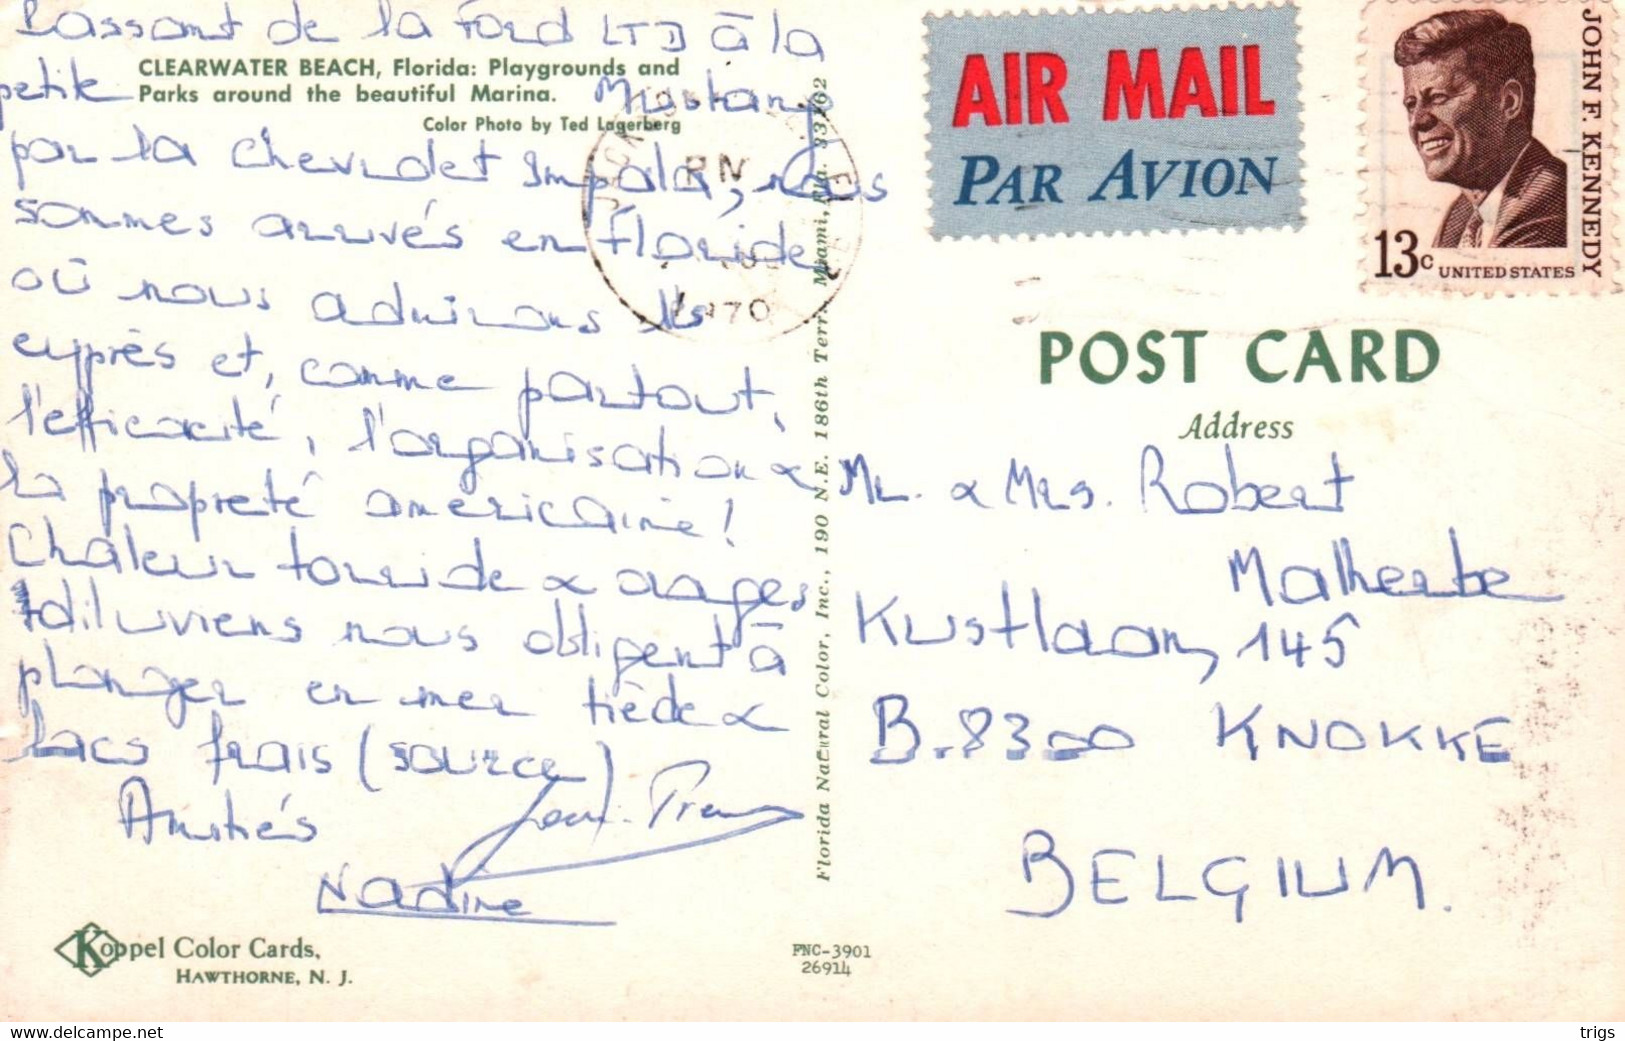 Passant de la Ford LTD à la
petite Mustang
CLEARWATER BEACH, Florida: Playgrounds and
Parks around the beautiful Marina.
Color Photo by Ted Lagerberg
par la Chevrolet Impala, nous
sommes arrivés en Floride
où nous admirons les
cyprès et, comme partout,
l'efficacité, l'organisation &
la propreté américaine!
Chaleur torride & orages
diluviens nous obligent à
plonger en mer tiède &
lacs frais (source)
Amitiés
Nadine
Koppel Color Cards,
HAWTHORNE, N. J.
Florida Natural Color, Inc., 190 N.E. 186th Terr. Miami, Fla. 33162
FNC-3901
26914
PM
1970
AIR MAIL
PAR AVION
JOHN F. KENNEDY
13c UNITED STATES
POST CARD
Address
Mr. & Mrs. Robert
Malherbe
Kustlaan, 145
B.8300 KNOKKE
BELGIUM.
www.delcampe.net
trigs